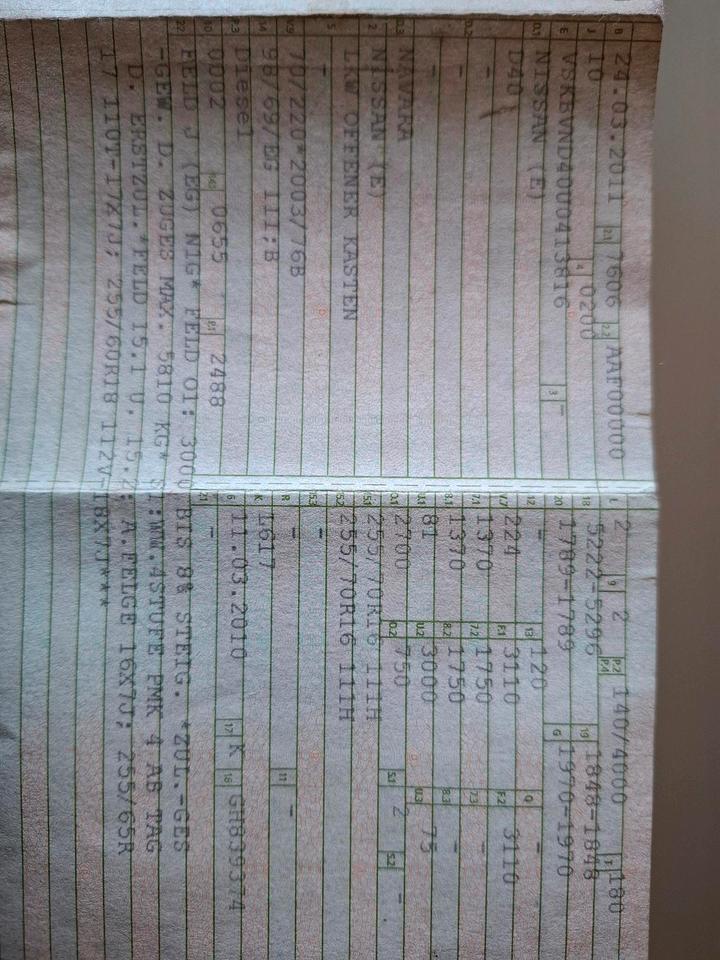 B 24.03.2011 2.1 7606 2.2 AAF00000 L 2 9 2 P.2 P.4 140/4000 T 180
J 10 4 0200 18 5222-5296 19 1848-1848
E 3 - 20 1789-1789 G 1970-1970
D.1 NISSAN (E) 12 - 13 120 Q -
D40 V.7 224 F.1 3110 F.2 3110
- 7.1 1370 7.2 1750 7.3 -
D.2 - 8.1 1370 8.2 1750 8.3 -
- U.1 81 U.2 3000 U.3 75
D.3 NAVARA O.1 2700 O.2 750 S.1 2 S.2 -
2 NISSAN (E) 15.1 255/70R16 111H
5 LKW OFFENER KASTEN 15.2 255/70R16 111H
- 15.3 -
V.9 70/220*2003/76B R - 11 -
14 98/69/EG III;B K L617
P.3 Diesel 6 11.03.2010 17 K 16 GH839374
10 0002 14.1 0655 P.1 2488 21 -
22 FELD J (EG) N1G* FELD O1: 3000 BIS 8% STEIG. *ZUL.-GES
-GEW. D. ZUGES MAX. 5810 KG* S1:MM.4STUFE PMK 4 AB TAG
D. ERSTZUL.*FELD 15.1 U. 15.2: A.FELGE 16X7J; 255/65R
17 110T-17X7J; 255/60R18 112V-18X7J***